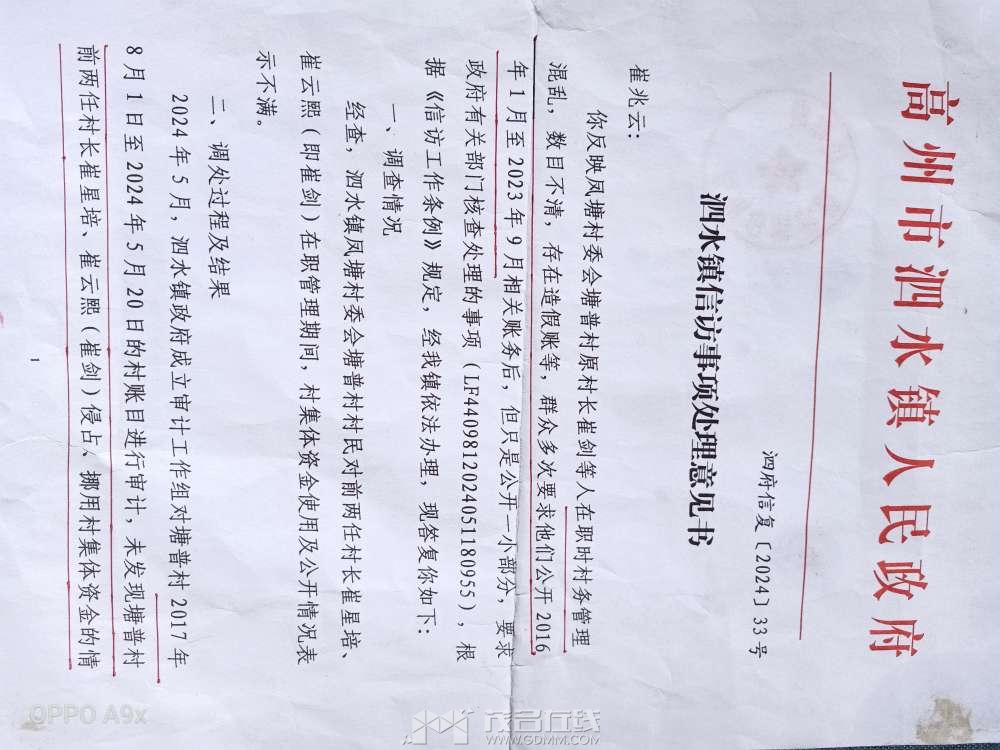 高州市泗水镇人民政府
泗府信复〔2024〕33号
泗水镇信访事项处理意见书
崔兆云：
你反映凤塘村委会塘普村原村长崔剑等人在职时村务管理
混乱，数目不清，存在造假账等，群众多次要求他们公开2016
年1月至2023年9月相关账务后，但只是公开一小部分，要求
政府有关部门核查处理的事项（LF4409812024051180955），根
据《信访工作条例》规定，经我镇依法办理，现答复你如下：
一、调查情况
经查，泗水镇凤塘村委会塘普村村民对前两任村长崔星培、
崔云熙（即崔剑）在职管理期间，村集体资金使用及公开情况表
示不满。
二、调处过程及结果
2024年5月，泗水镇政府成立审计工作组对塘普村2017年
8月1日至2024年5月20日的村账目进行审计，未发现塘普村
前两任村长崔星培、崔云熙（崔剑）侵占、挪用村集体资金的情
1
OPPO A9x
茂名在线
WWW.GDMM.COM